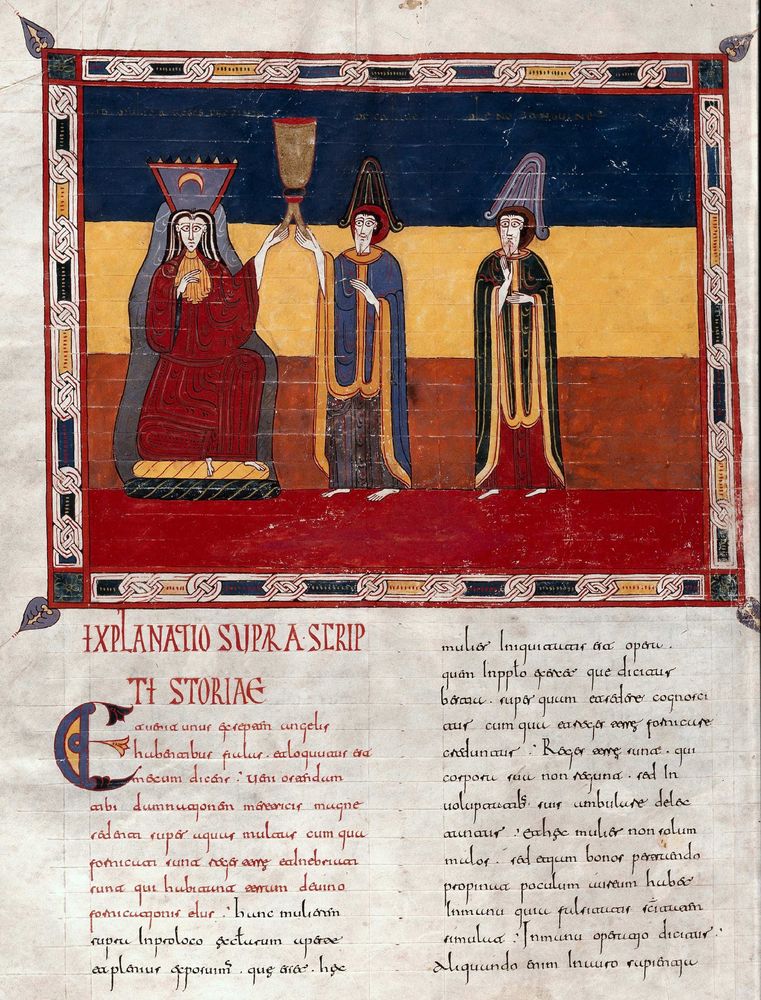 EXPLANATIO SUPRA·SCRIP
TI STORIAE
Et venit unus ex septem angelis
habentibus fialas. et loquutus est
mecum dicens: veni ostendam
tibi damnationem meretricis magne
sedenti super aquas multas cum qua
fornicati sunt reges terre et inebriati
sunt qui habitant terram de vino
fornicationis eius. hunc mulierem
supra in proloco aperte
et plenius exposuim̄. que est. hec
mulier iniquitatis est opera.
quam in pplo exercet que dicitur
bestia. super quam et sedere cognosci
tur. cum qua et reges terre fornicare
creduntur: Reges terre sunt. qui
corpora sua non regunt. sed in
voluptatib; suis ambulare delec
tantur: et hec mulier non solum
malos. sed etiam bonos
propinat poculum aureum habet
in manu quia falsitatis sc̄itatem
simulat: In manu operatio dicitur:
Aliquando enim in auro sapientia